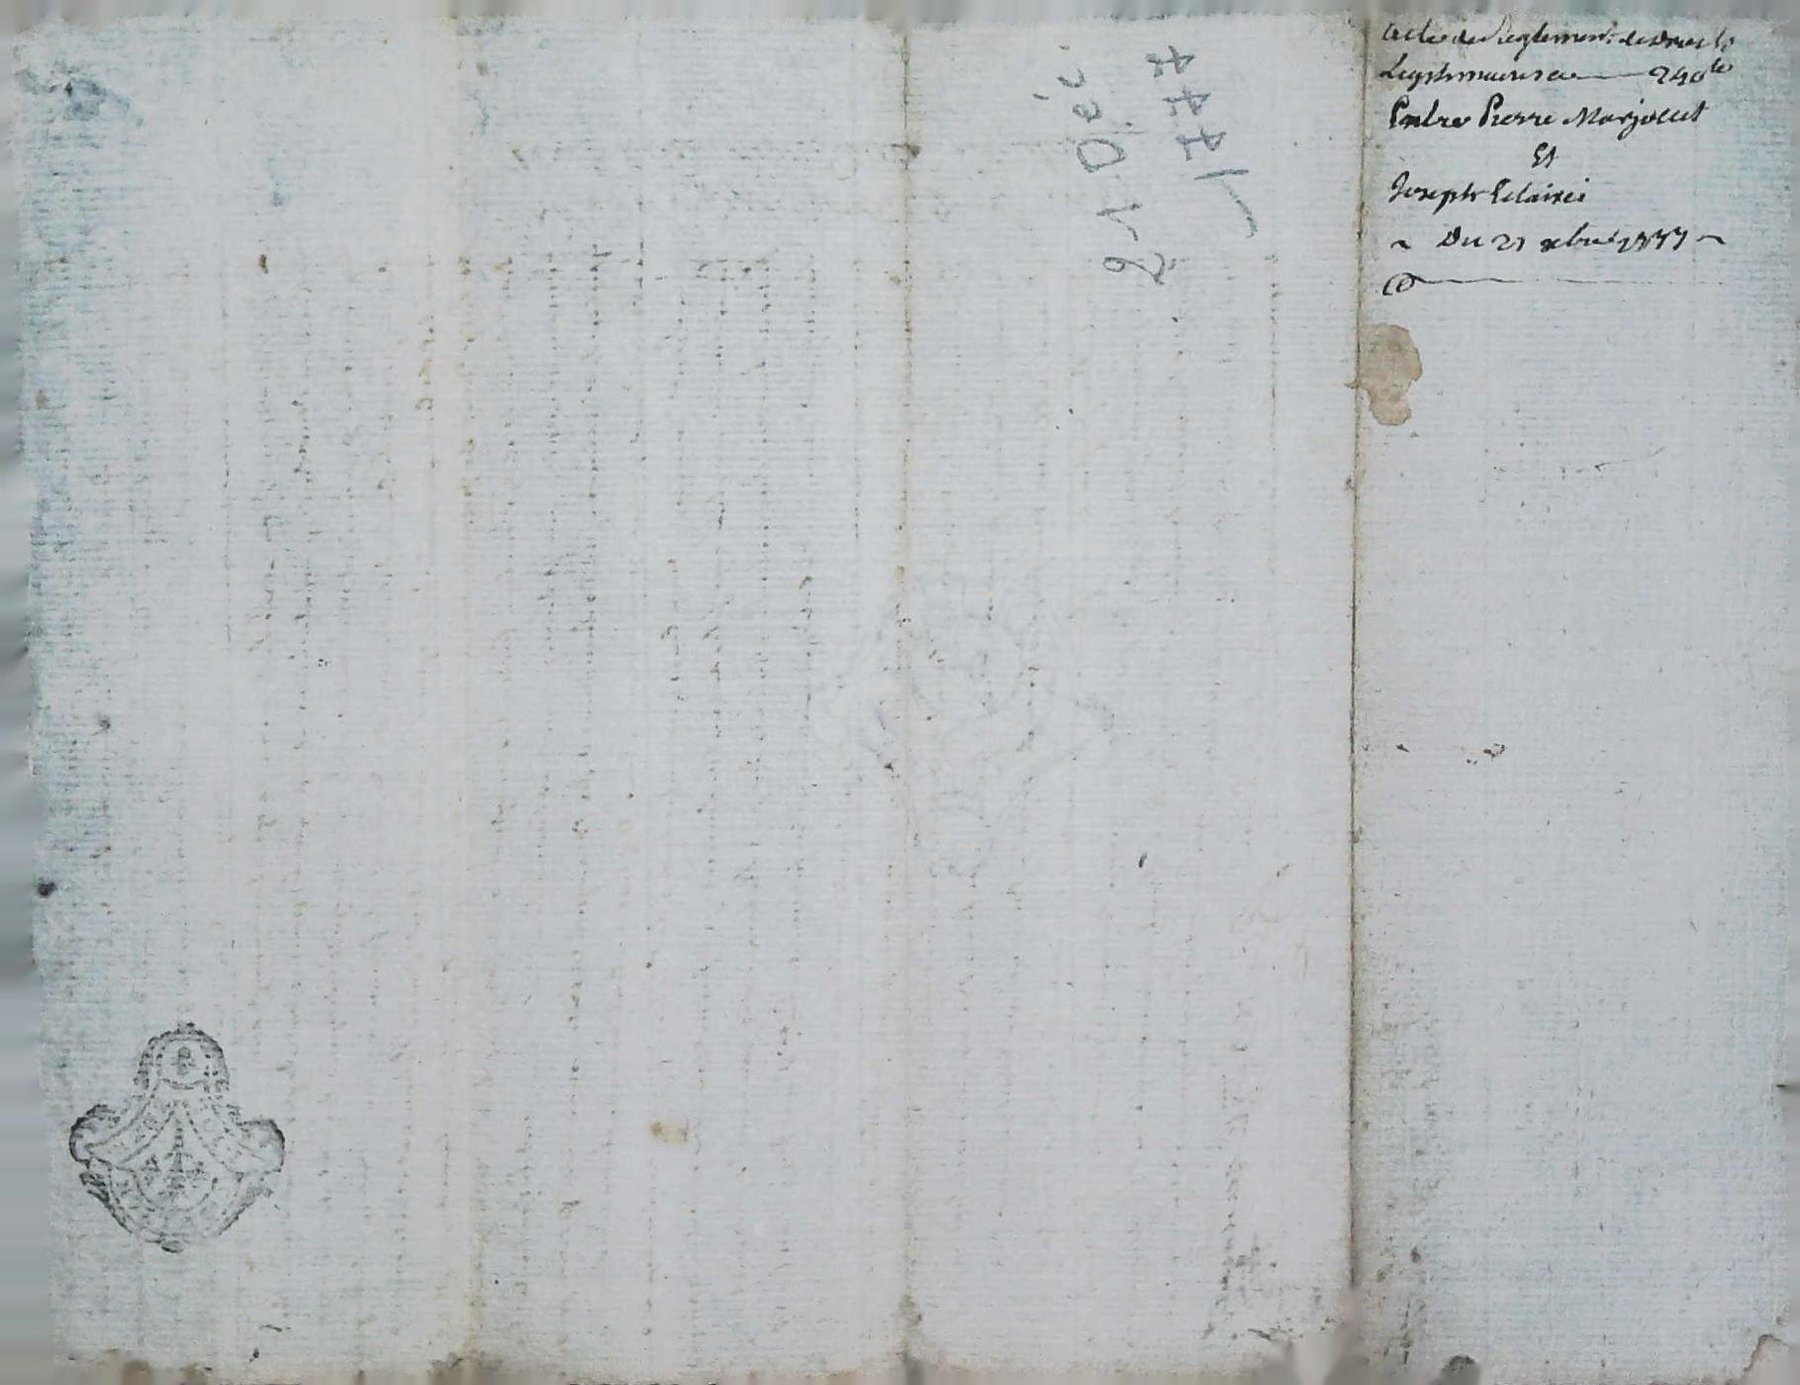 Acte de Reglement de droits
Legitimaires 240
Entre Pierre Marjolet
Et
Joseph Eclairci
Du 21 xbre 1777
21 Dec.
1777